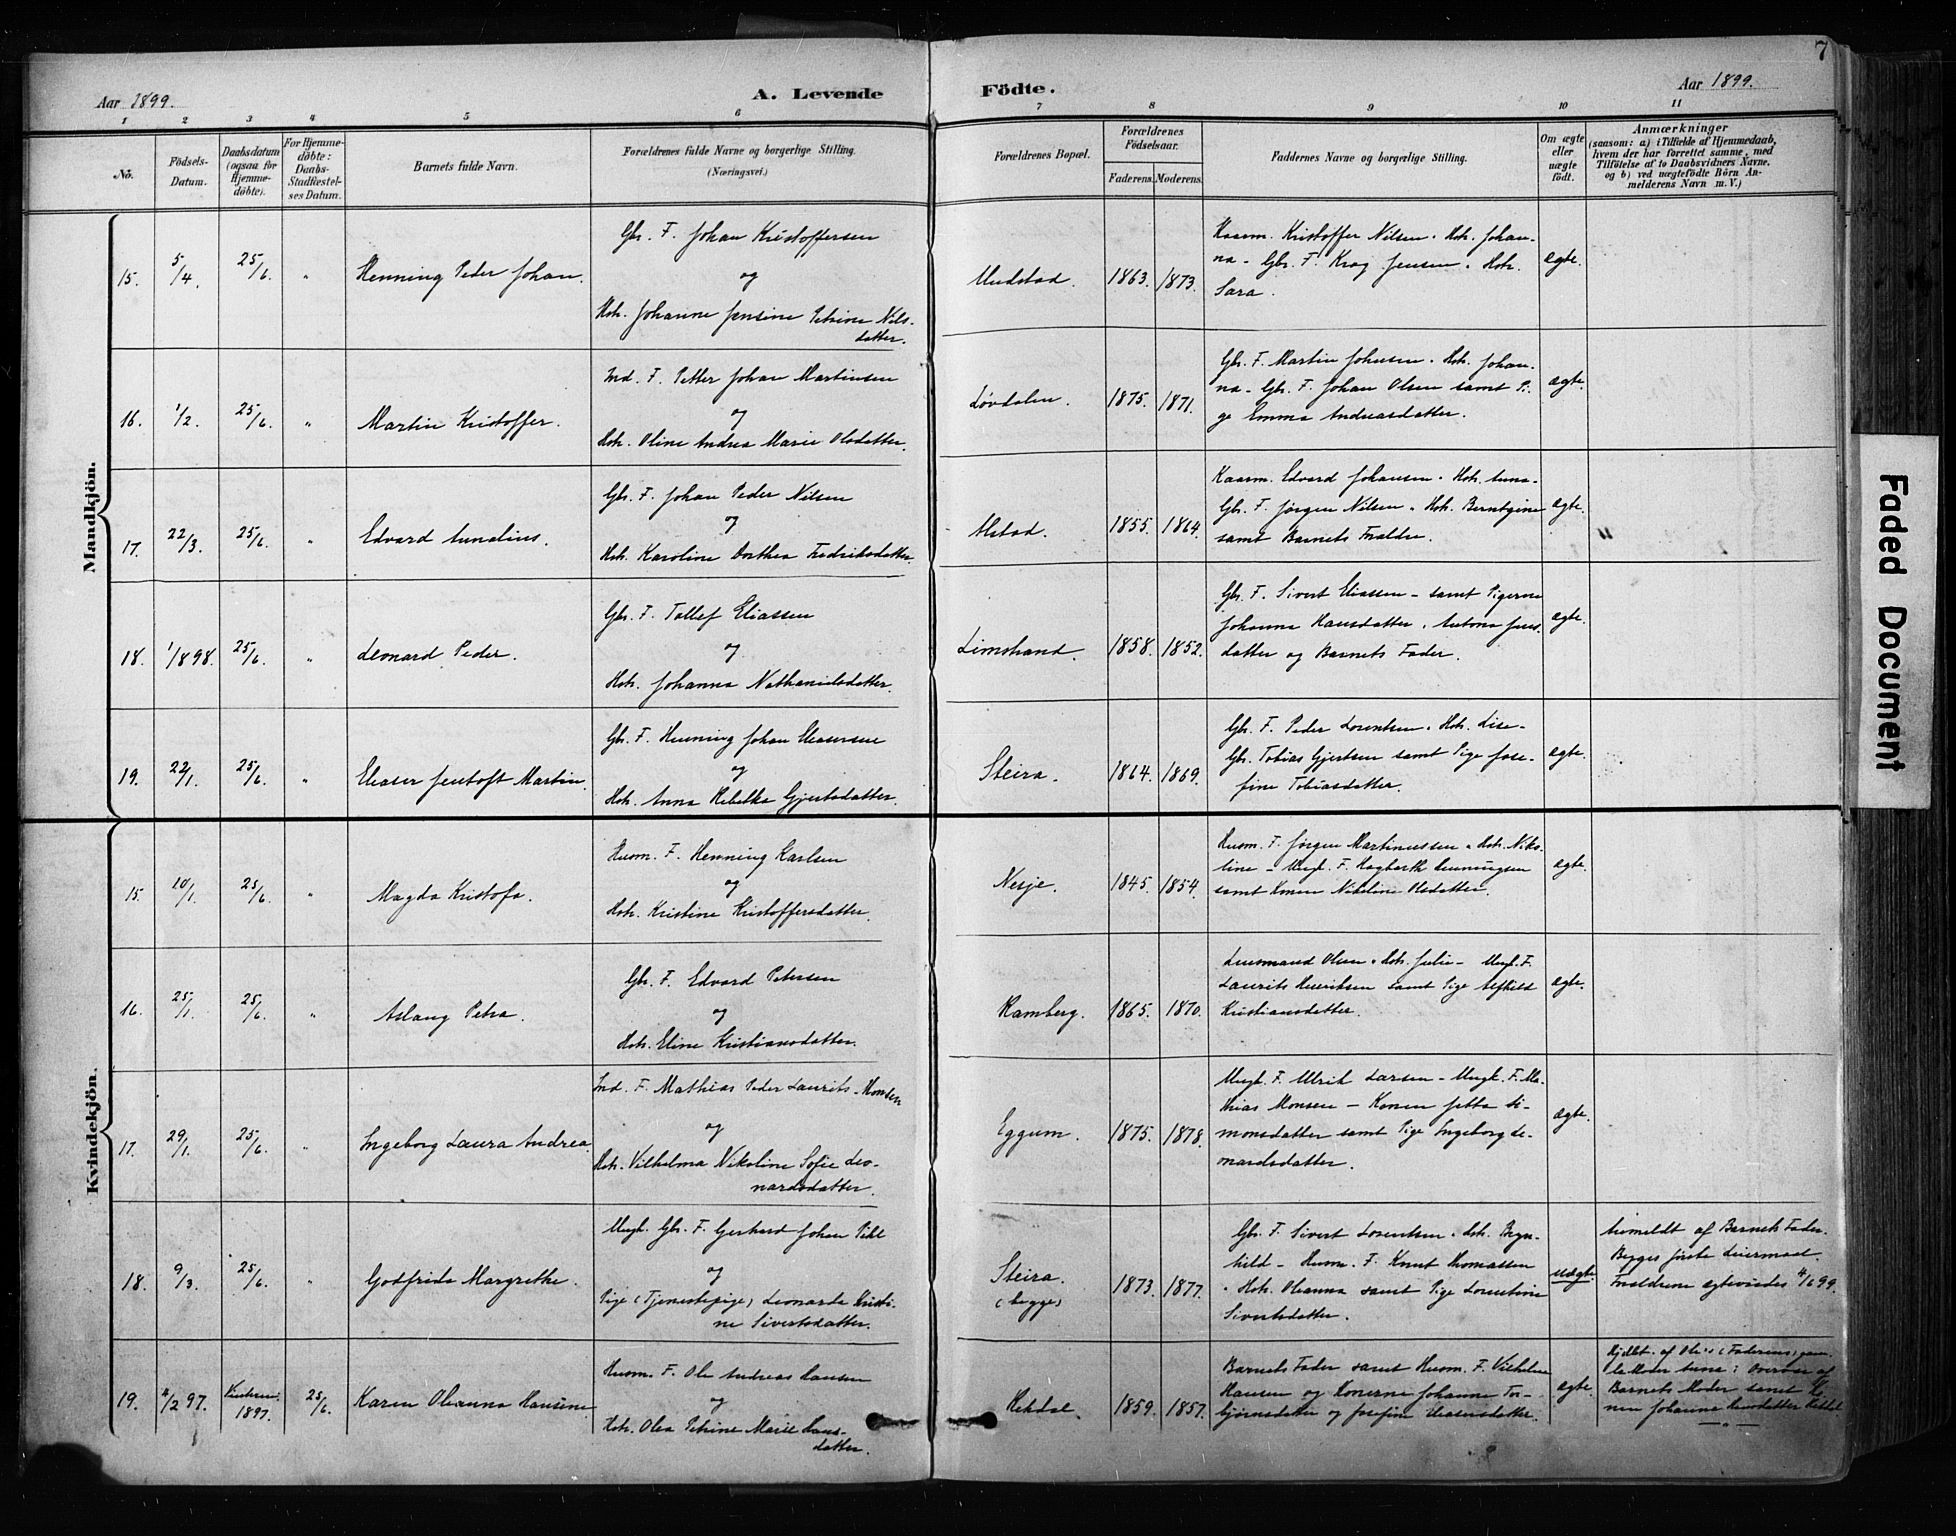 7
Aar 1899.
A. Levende Födte.
Aar 1899.
1 2 3 4 5 6 7 8 9 10 11
No.
Födsels-
Datum.
Daabsdatum
(ogsaa for
Hjemme-
döbte).
For Hjemme-
döbte:
Daabs-
Stadfæstel-
ses Datum.
Barnets fulde Navn.
Forældrenes fulde Navne og borgerlige Stilling.
(Næringsvei.)
Forældrenes Bopæl.
Forældrenes
Födselsaar.
Faderens. Moderens.
Faddernes Navne og borgerlige Stilling.
Om ægte
eller
uægte
födt.
Anmærkninger
(saasom: a) i Tilfælde af Hjemmedaab,
hvem der har forrettet samme, med
Tilföielse af to Daabsvidners Navne,
og b) ved uægtefödte Börn An-
melderens Navn m. V.)
Mandkjön.
15. 5/4. 25/6. " Henning Peder Johan.
Gbr. F. Johan Kristoffersen
og
Hstr. Johanne Jensine Petrine Nils-
datter.
1863. 1873.
Kaarm. Kristoffer Nilsen. Hstr. Johan-
na - Gbr. F. Krog Jensen. Hstr.
Sara.
ægte.
16. 1/2. 25/6. " Martin Kristoffer.
Ind. F. Petter Johan Martinsen
og
Hstr. Oline Andrea Marie Olsdatter.
Løvdalen. 1875. 1871.
Gbr. F. Martin Johnsen. Hstr. Johan-
na - Gbr. F. Johan Olsen samt Pi-
ge Emma Andreasdatter.
ægte.
17. 22/3. 25/6. " Edvard Annelius.
Gbr. F. Johan Peder Nilsen
og
Hstr. Karoline Dorthea Fredriksdatter.
Alstad. 1855. 1864.
Kaarm. Edvard Johansen. Hstr. Anna-
Gbr. F. Jørgen Nilsen. Hstr. Berntgine
samt Barnets Forældre.
ægte.
18. 1/8 98. 25/6. " Leonard Peder.
Gbr. F. Tollef Eliassen
og
Hstr. Johanna Nathanielsdatter.
Limstrand. 1858. 1852.
Gbr. F. Sivert Eliassen - samt Pigerne
Johanna Hansdatter. Antona Jens-
datter og Barnets Fader.
ægte.
19. 22/1. 25/6. " Eleaser Jentoft Martin.
Gbr. F. Henning Johan Eleasersen
og
Hstr. Anna Rebekka Gjertsdatter.
Steira. 1864. 1869.
Gbr. F. Peder Lorentsen. Hstr. Lise-
Gbr. Tobias Gjertsen samt Pige Jose-
fine Tobiasdatter.
ægte.
Kvindekjön.
15. 10/1. 25/6. " Magda Kristofa.
Husm. F. Henning Karlsen
og
Hstr. Kristine Kristoffersdatter.
Nesje. 1845. 1854.
Husm. F. Jørgen Martinussen. Hstr. Niko-
line - Ungk. F. Hagbarth Henningsen
samt Konen Nikoline Olsdatter.
ægte.
16. 25/1. 25/6. " Aslaug Petra.
Gbr. F. Edvard Petersen
og
Hstr. Eline Kristiansdatter.
Ramberg. 1865. 1870.
Lensmand Olsen. Hstr. Julie- Ungk. F.
Laurits Henriksen samt Pige Alfhild
Kristiansdatter.
ægte.
17. 29/1. 25/6. " Ingeborg Laura Andrea.
Ind. F. Mathias Peder Laurits Monsen
og
Hstr. Vilhelma Nikoline Sofie Leo-
nardsdatter.
Eggum. 1875. 1878.
Ungk. F. Ulrik Larsen - Ungk. F. Ma-
thias Monsen - Konen Jetta Si-
monsdatter samt Pige Ingeborg Le-
onardsdatter.
ægte.
18. 9/3. 25/6. " Godfrida Margrethe.
Ungk. Gbr. F. Gerhard Johan Pihl
og
Pige (Tjenestepige) Leonarda Kristi-
ne Sivertsdatter.
Steira.
(begge)
1873. 1877.
Gbr. F. Sivert Lorentsen. Hstr. Bryn-
hild - Husm. F. Knut Thomassen
. Hstr. Oleanna samt Pige Lorentine
Sivertsdatter.
uægte.
Anmeldt af Barnets Fader.
Begges første Leiermaal.
Forældrene ægteviedes 4/6 99.
19. 4/2 97. 1897. 25/6. Karen Oleanna Hansine
Husm. F. Ole Andreas Hansen
og
Hstr. Olea Petrine Marie Hans-
datter.
Hekdal. 1859. 1857.
Barnets Fader samt Husm. F. Vilhelm
Hansen og Konerne Johanna Tor-
bjørnsdatter og Josefine Eleasersdatter.
ægte.
Barnets Moder samt Ko-
nen Johanna
Faded Document